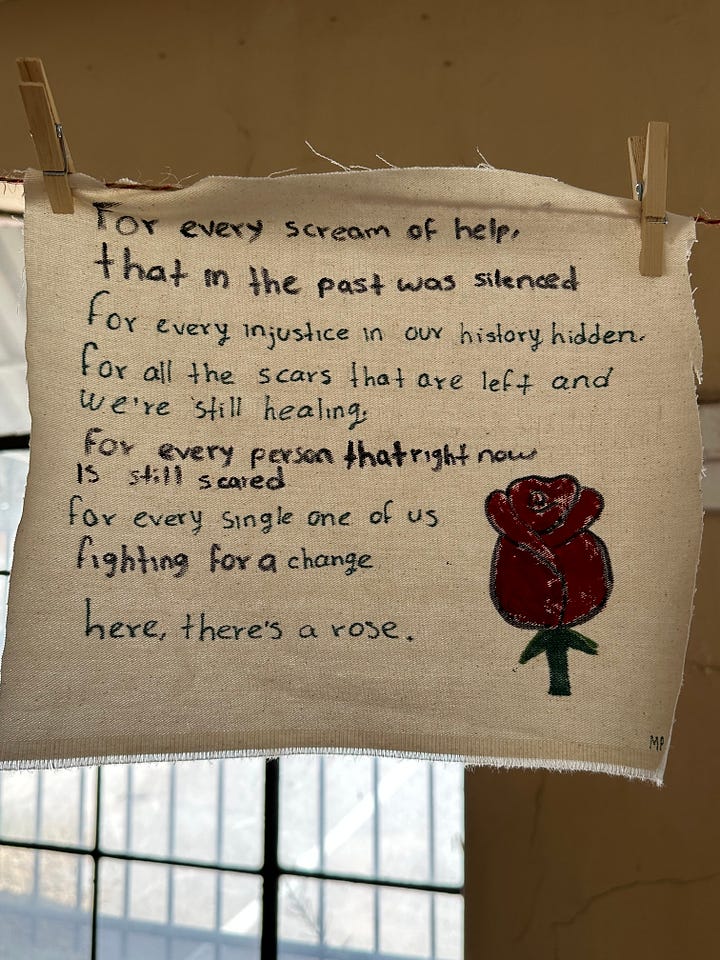 For every scream of help,
that in the past was silenced
for every injustice in our history hidden.
for all the scars that are left and
we're still healing.
for every person that right now
is still scared
for every single one of us
fighting for a change
here, there's a rose.
MP